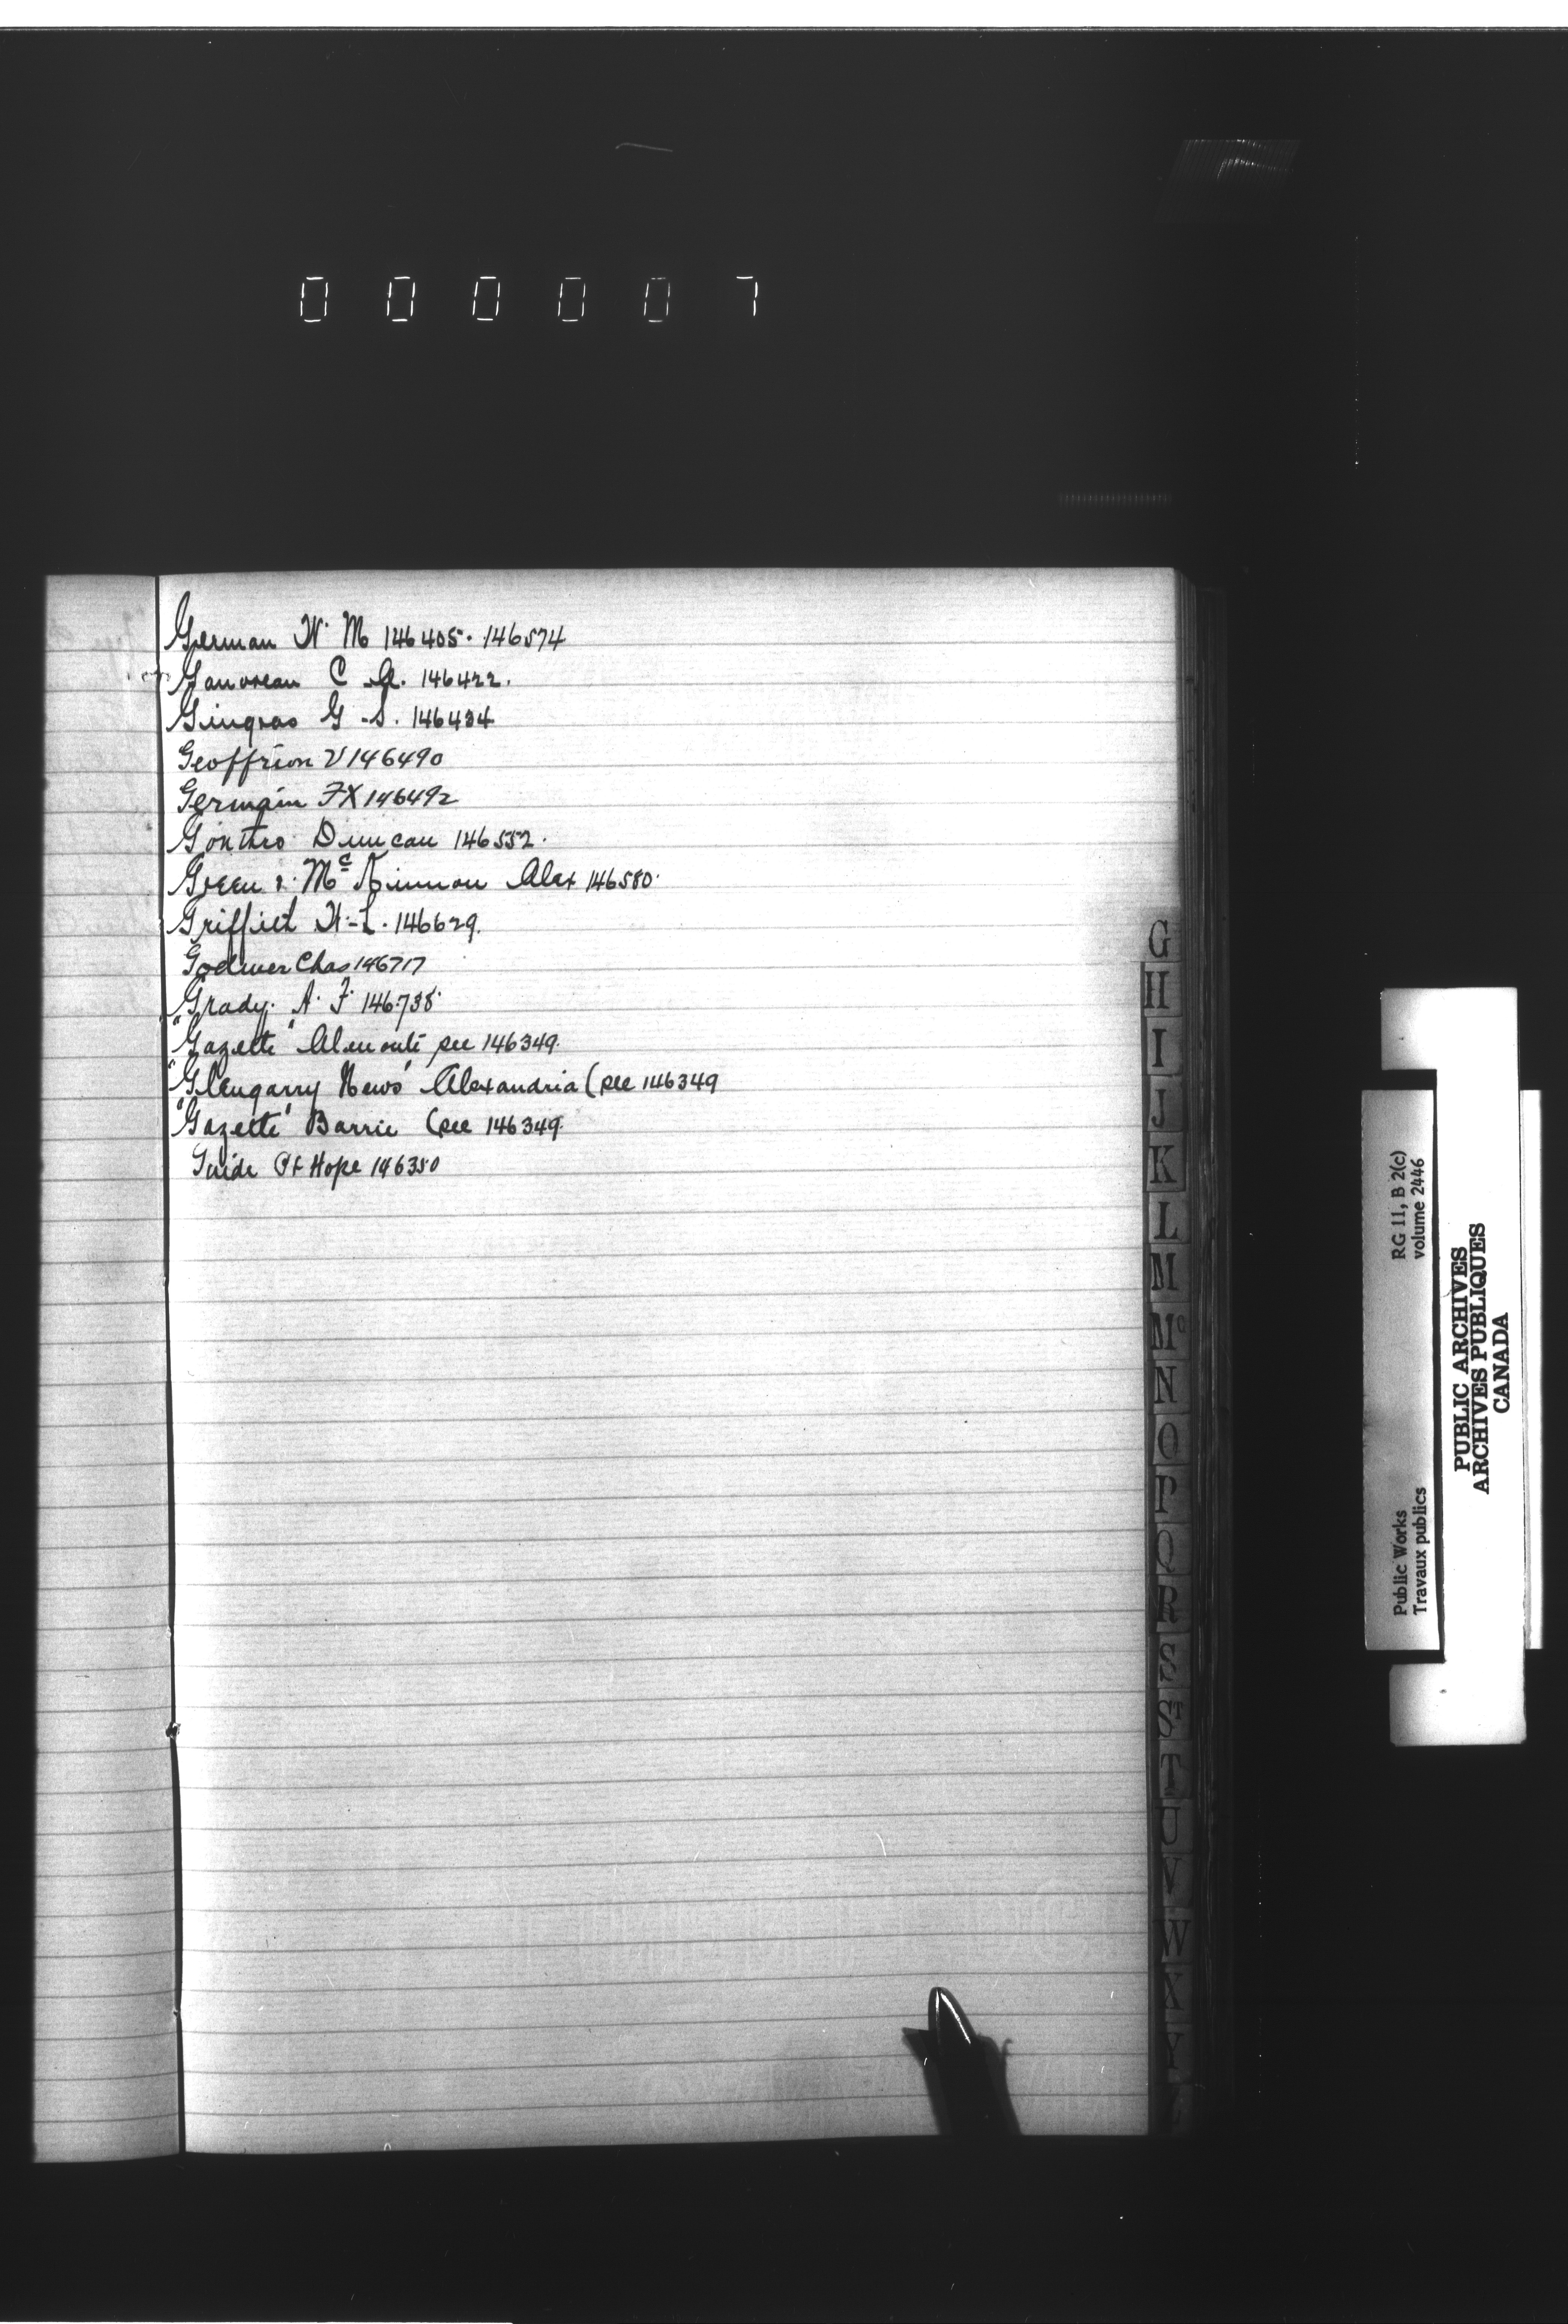 000007
German W. M 146405. 146574
Gauvreau C. A. 146422.
Gingras G. S. 146434
Geoffrion V 146490
Germain FX 146492
Gonthro Duncan 146552.
Green & Mc Kinnon Alex 146580.
Griffith W. L. 146629.
Chas 146717
Grady. A. F. 146738.
"Gazette" Almonte see 146349.
"Glengarry News" Alexandria (see 146349
"Gazette" Barrie (see 146349.
Guide Pt Hope 146350
G
H
I
J
K
L
M
Mc
N
O
P
Q
R
S
ST
T
U
V
W
X
Y
Public Works
Travaux publics
RG 11, B 2(c)
volume 2446
PUBLIC ARCHIVES
ARCHIVES PUBLIQUES
CANADA